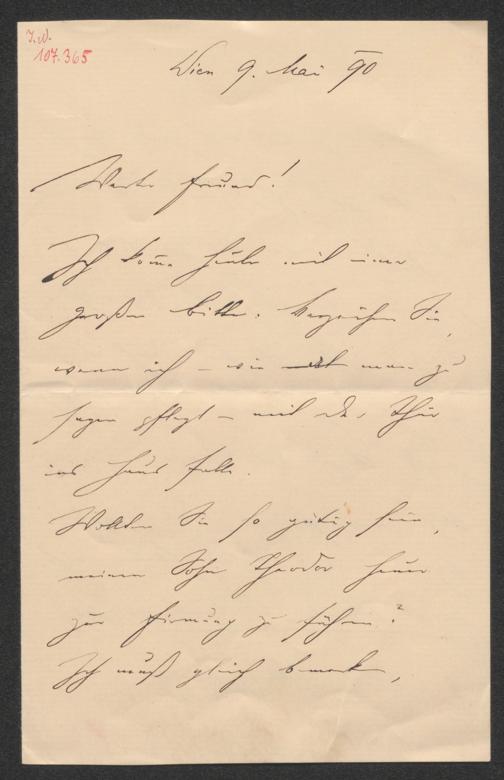 I.N.
107.365
Wien 9. Mai 90
Werter Freund!
Ich komme heute mit einer
großen Bitte. Verzeihen Sie,
wenn ich – wie man zu
sagen pflegt – mit der Thür
ins Haus falle.
Wollten Sie so gütig sein,
meinen Sohn Theodor heuer
zur Firmung zu führen?
Ich muß gleich bemerken,